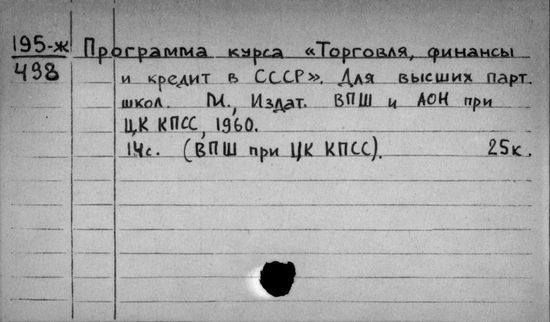 195-ж Программа курса «Торговля, финансы
498 и кредит в СССР». Для высших парт.
школ. М., Издат. ВПШ и АОН при
ЦК КПСС, 1960.
14с. (ВПШ при ЦК КПСС). 25к.